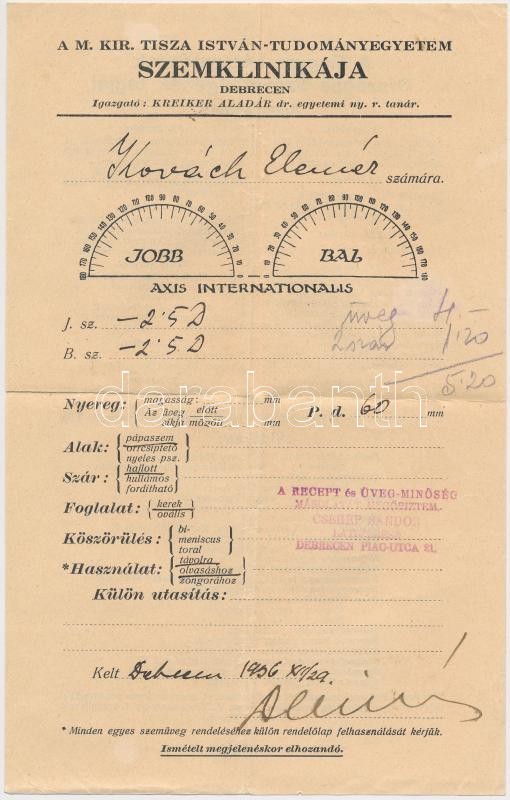 A M. KIR. TISZA ISTVÁN-TUDOMÁNYEGYETEM
SZEMKLINIKÁJA
DEBRECEN
Igazgató: KREIKER ALADÁR dr. egyetemi ny. r. tanár.
Kovách Elemér számára.
180 170 160 150 140 130 120 110 100 90 80 70 60 50 40 30 20 10 0
0 10 20 30 40 50 60 70 80 90 100 110 120 130 140 150 160 170 180
JOBB BAL
AXIS INTERNATIONALIS
J. sz. -2·5 D üveg 4.-
B. sz. -2·5.D 1.20
5·20
darabanth
Nyereg: magasság: mm
Az üveg előtt mm
síkja mögött mm
P. d. 60 mm
Alak: pápaszem
orrcsiptető
nyeles psz.
Szár: hajlott
hullámos
fordítható
Foglalat: kerek
ovális
A RECEPT és ÜVEG-MINŐSÉG
MEGŐRIZTEM.
CSEREP SÁNDOR
DEBRECEN PIAC-UTCA 21.
Köszörülés: bi-
meniscus
toral
*Használat: távolra
olvasáshoz
zongorához
Külön utasítás:
Kelt Debrecen 1936 XII/29.
* Minden egyes szemüveg rendeléséhez külön rendelőlap felhasználását kérjük.
Ismételt megjelenéskor elhozandó.